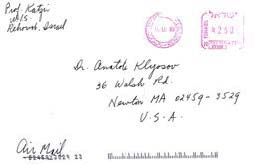 Prof. Katzir
W.I.S.
Rehovot, Israel
Dr. Anatole Klyosov
36 Walsh Rd.
Newton MA 02459-3529
U.S.A.
Air Mail